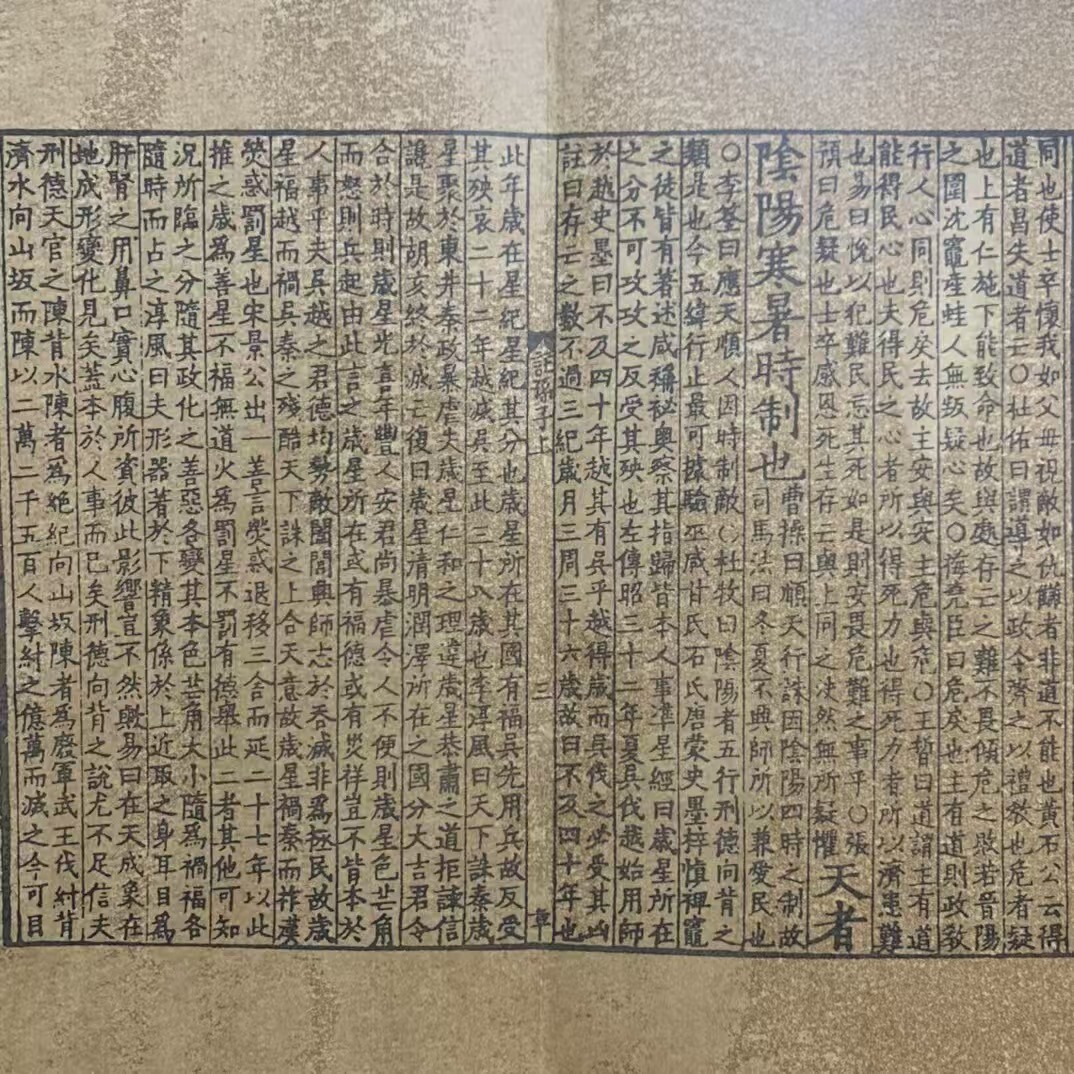 同也使士卒懷我如父母視敵如仇讎者非道不能也黃石公云得
道者昌失道者亡○杜佑曰謂導之以政令齊之以禮敎也危者疑
也上有仁施下能致命也故與處存亡之難不畏傾危之敗若晉陽
之圍沈竈產蛙人無叛疑心矣○梅堯臣曰危戾也主有道則政敎
行人心同則危戾去故主安與安主危與危○王晳曰道謂主有道
能得民心也夫得民之心者所以得死力也得死力者所以濟患難
也易曰悅以犯難民忘其死如是則安畏危難之事乎○張
預曰危疑也士卒感恩死生存亡與上同之决然無所疑懼
天者
陰陽寒暑時制也
曹操曰順天行誅因陰陽四時之制故
司馬法曰冬夏不興師所以兼愛民也
○李筌曰應天順人因時制敵○杜牧曰陰陽者五行刑德向背之
類是也今五緯行止最可據驗巫咸甘氏石氏唐蒙史墨梓愼裨竈
之徒皆有著述咸稱祕奧察其指歸皆本人事准星經曰歲星所在
之分不可攻攻之反受其殃也左傳昭三十二年夏吳伐越始用師
於越史墨曰不及四十年越其有吳乎越得歲而吳伐之必受其凶
註曰存亡之數不過三紀歲月三周三十六歲故曰不及四十年也
註孫子上
三
此年歲在星紀星紀其分也歲星所在其國有福吳先用兵故反受
其殃哀二十二年越滅吳至此三十八歲也李淳風曰天下誅秦歲
星聚於東井秦政暴虐失歲星仁和之理違歲星恭肅之道拒諫信
讒是故胡亥終於滅亡復曰歲星清明潤澤所在之國分大吉君令
合於時則歲星光喜年豐人安君尚暴虐令人不便則歲星色芒角
而怒則兵起由此言之歲星所在或有福德或有災祥豈不皆本於
人事乎夫吳越之君德均勢敵闔閭興師志於吞滅非爲拯民故歲
星福越而禍吳秦之殘酷天下誅之上合天意故歲星禍秦而祚漢
熒惑罰星也宋景公出一善言熒惑退移三舍而延二十七年以此
推之歲爲善星不福無道火爲罰星不罰有德舉此二者其他可知
况所臨之分隨其政化之善惡各變其本色芒角大小隨爲禍福各
隨時而占之淳風曰夫形器著於下精象係於上近取之身耳目爲
肝腎之用鼻口實心腹所資彼此影響豈不然歟易曰在天成象在
地成形變化見矣蓋本於人事而已矣刑德向背之說尤不足信夫
刑德天官之陳背水陳者爲絶紀向山坂陳者爲廢軍武王伐紂背
濟水向山坂而陳以二萬二千五百人擊紂之億萬而滅之今可目